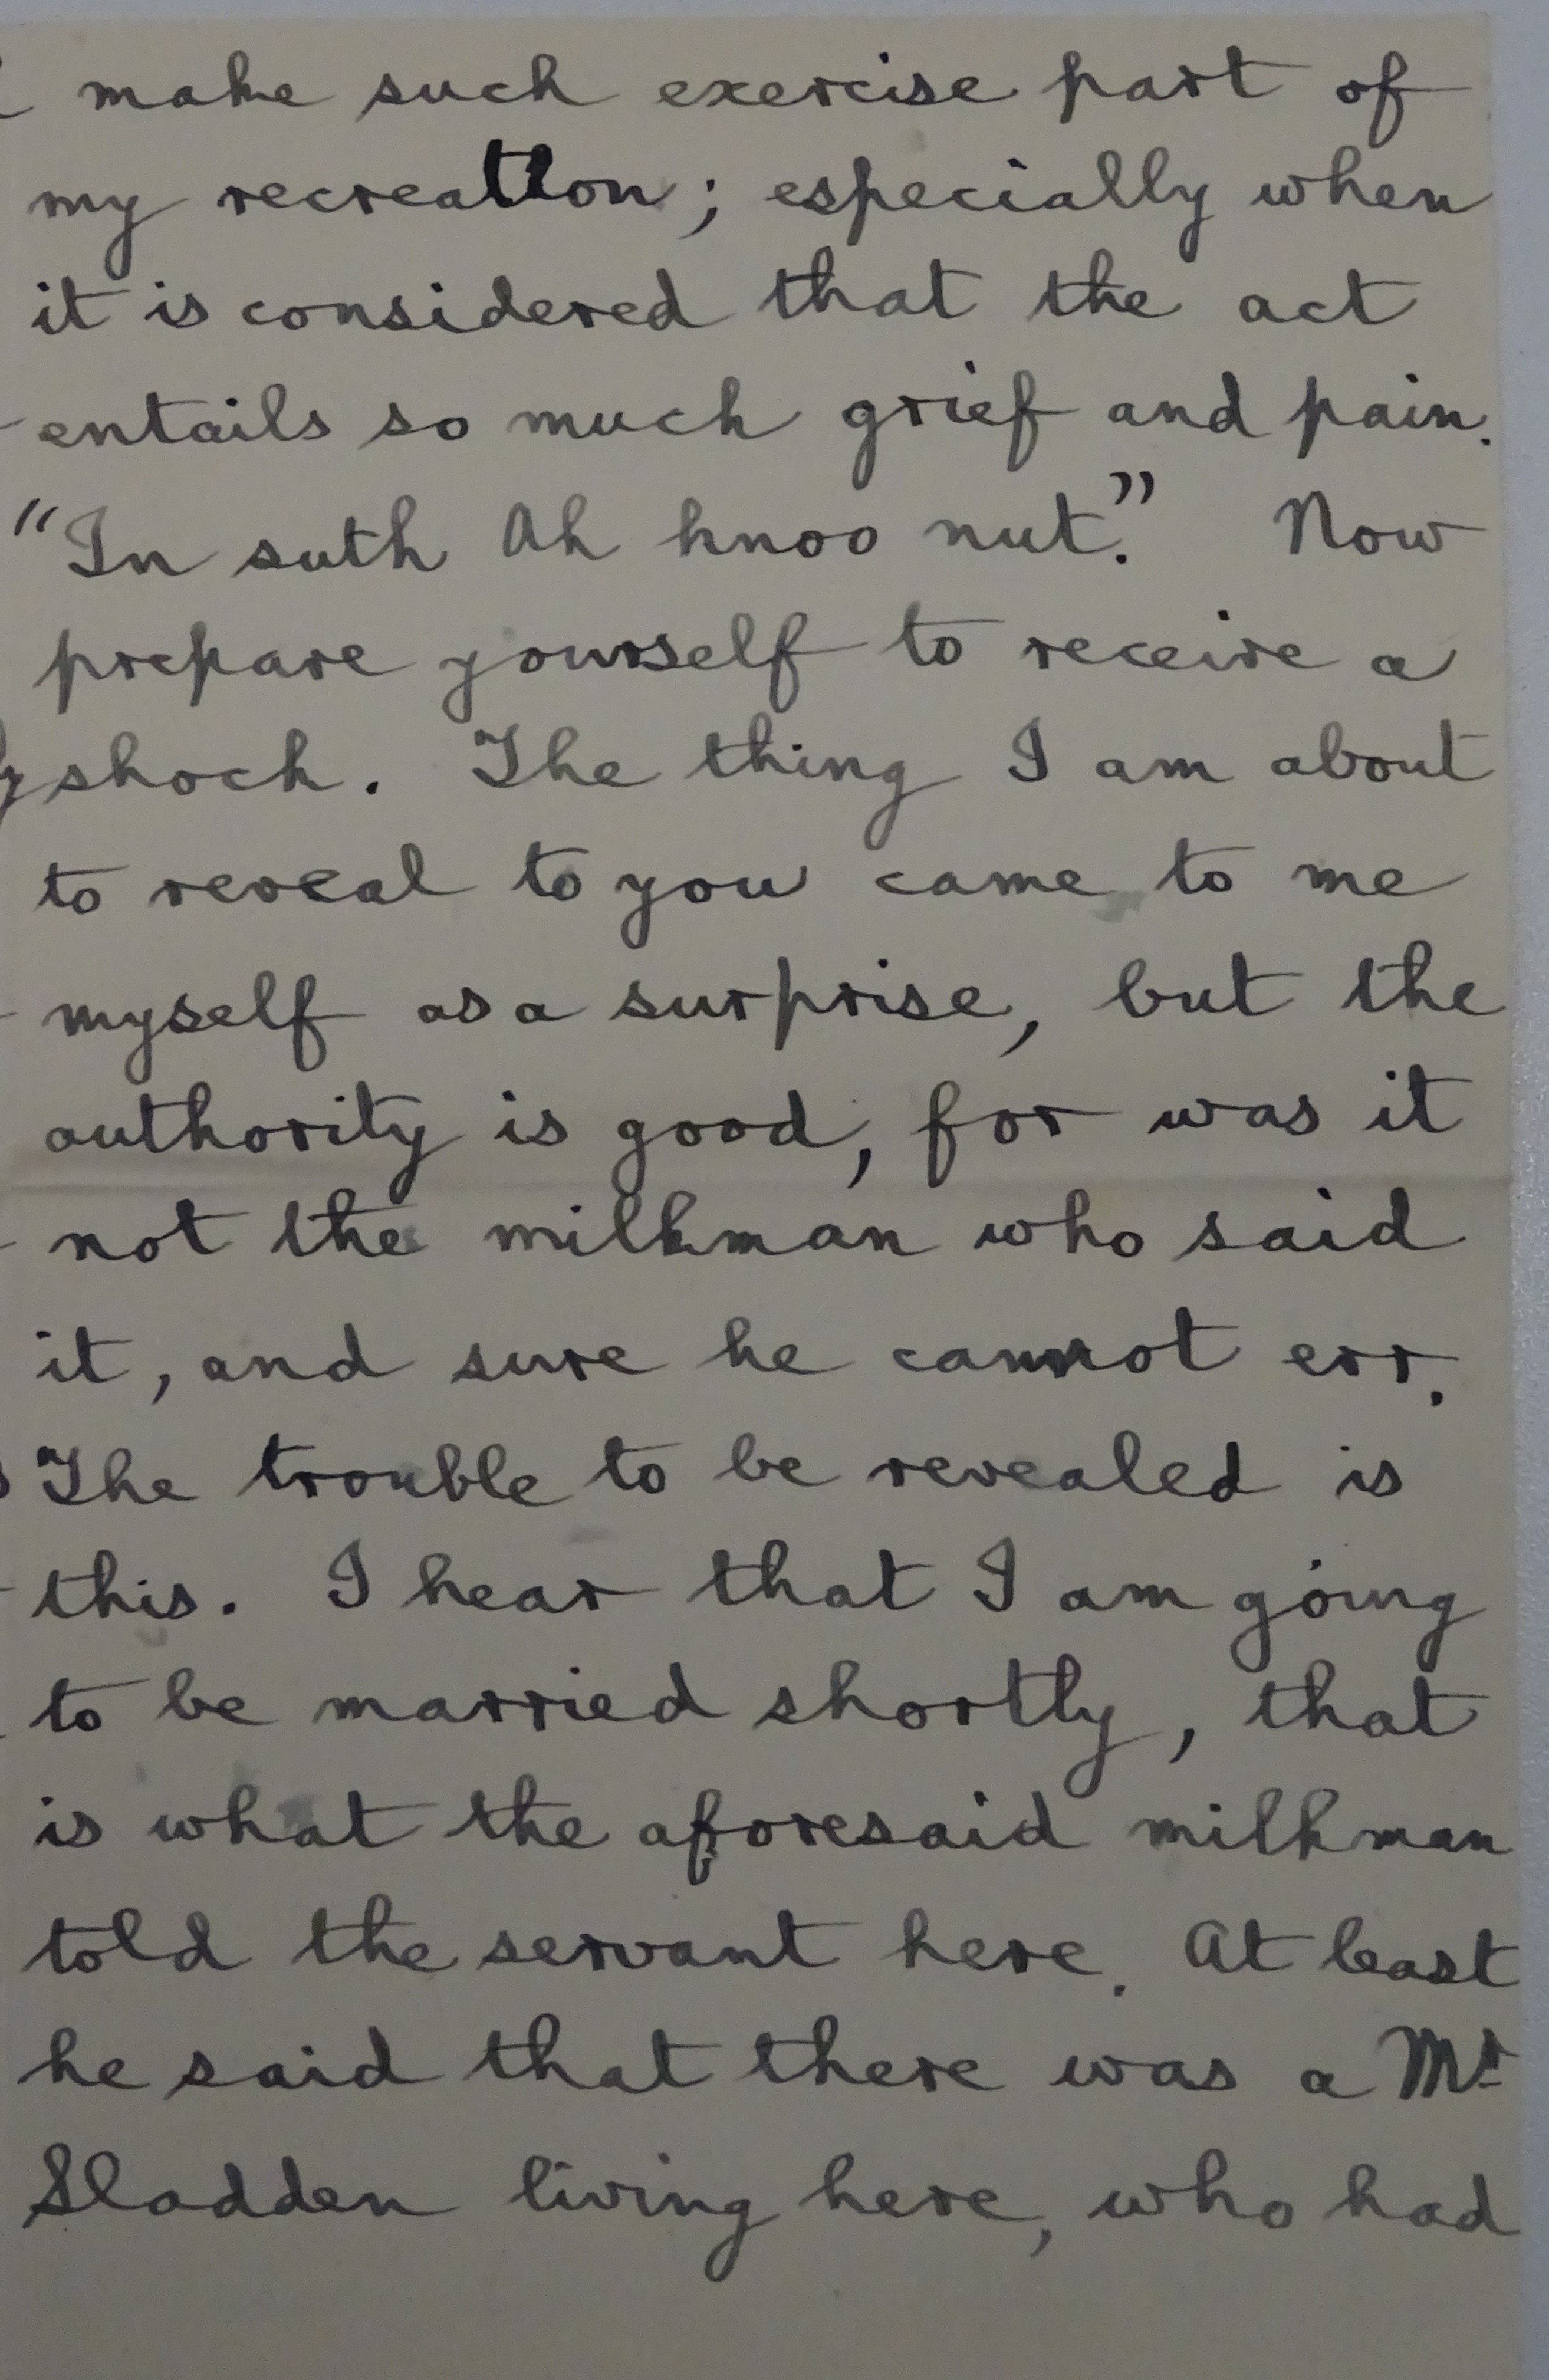 make such exercise part of
my recreation; especially when
it is considered that the act
entails so much grief and pain.
"In suth Ah knoo nut." Now
prepare yourself to receive a
shock. The thing I am about
to reveal to you came to me
myself as a surprise, but the
authority is good, for was it
not the milkman who said
it, and sure he cannot err.
The trouble to be revealed is
this. I hear that I am going
to be married shortly, that
is what the aforesaid milkman
told the servant here. At least
he said that there was a Mr
Sladden living here, who had